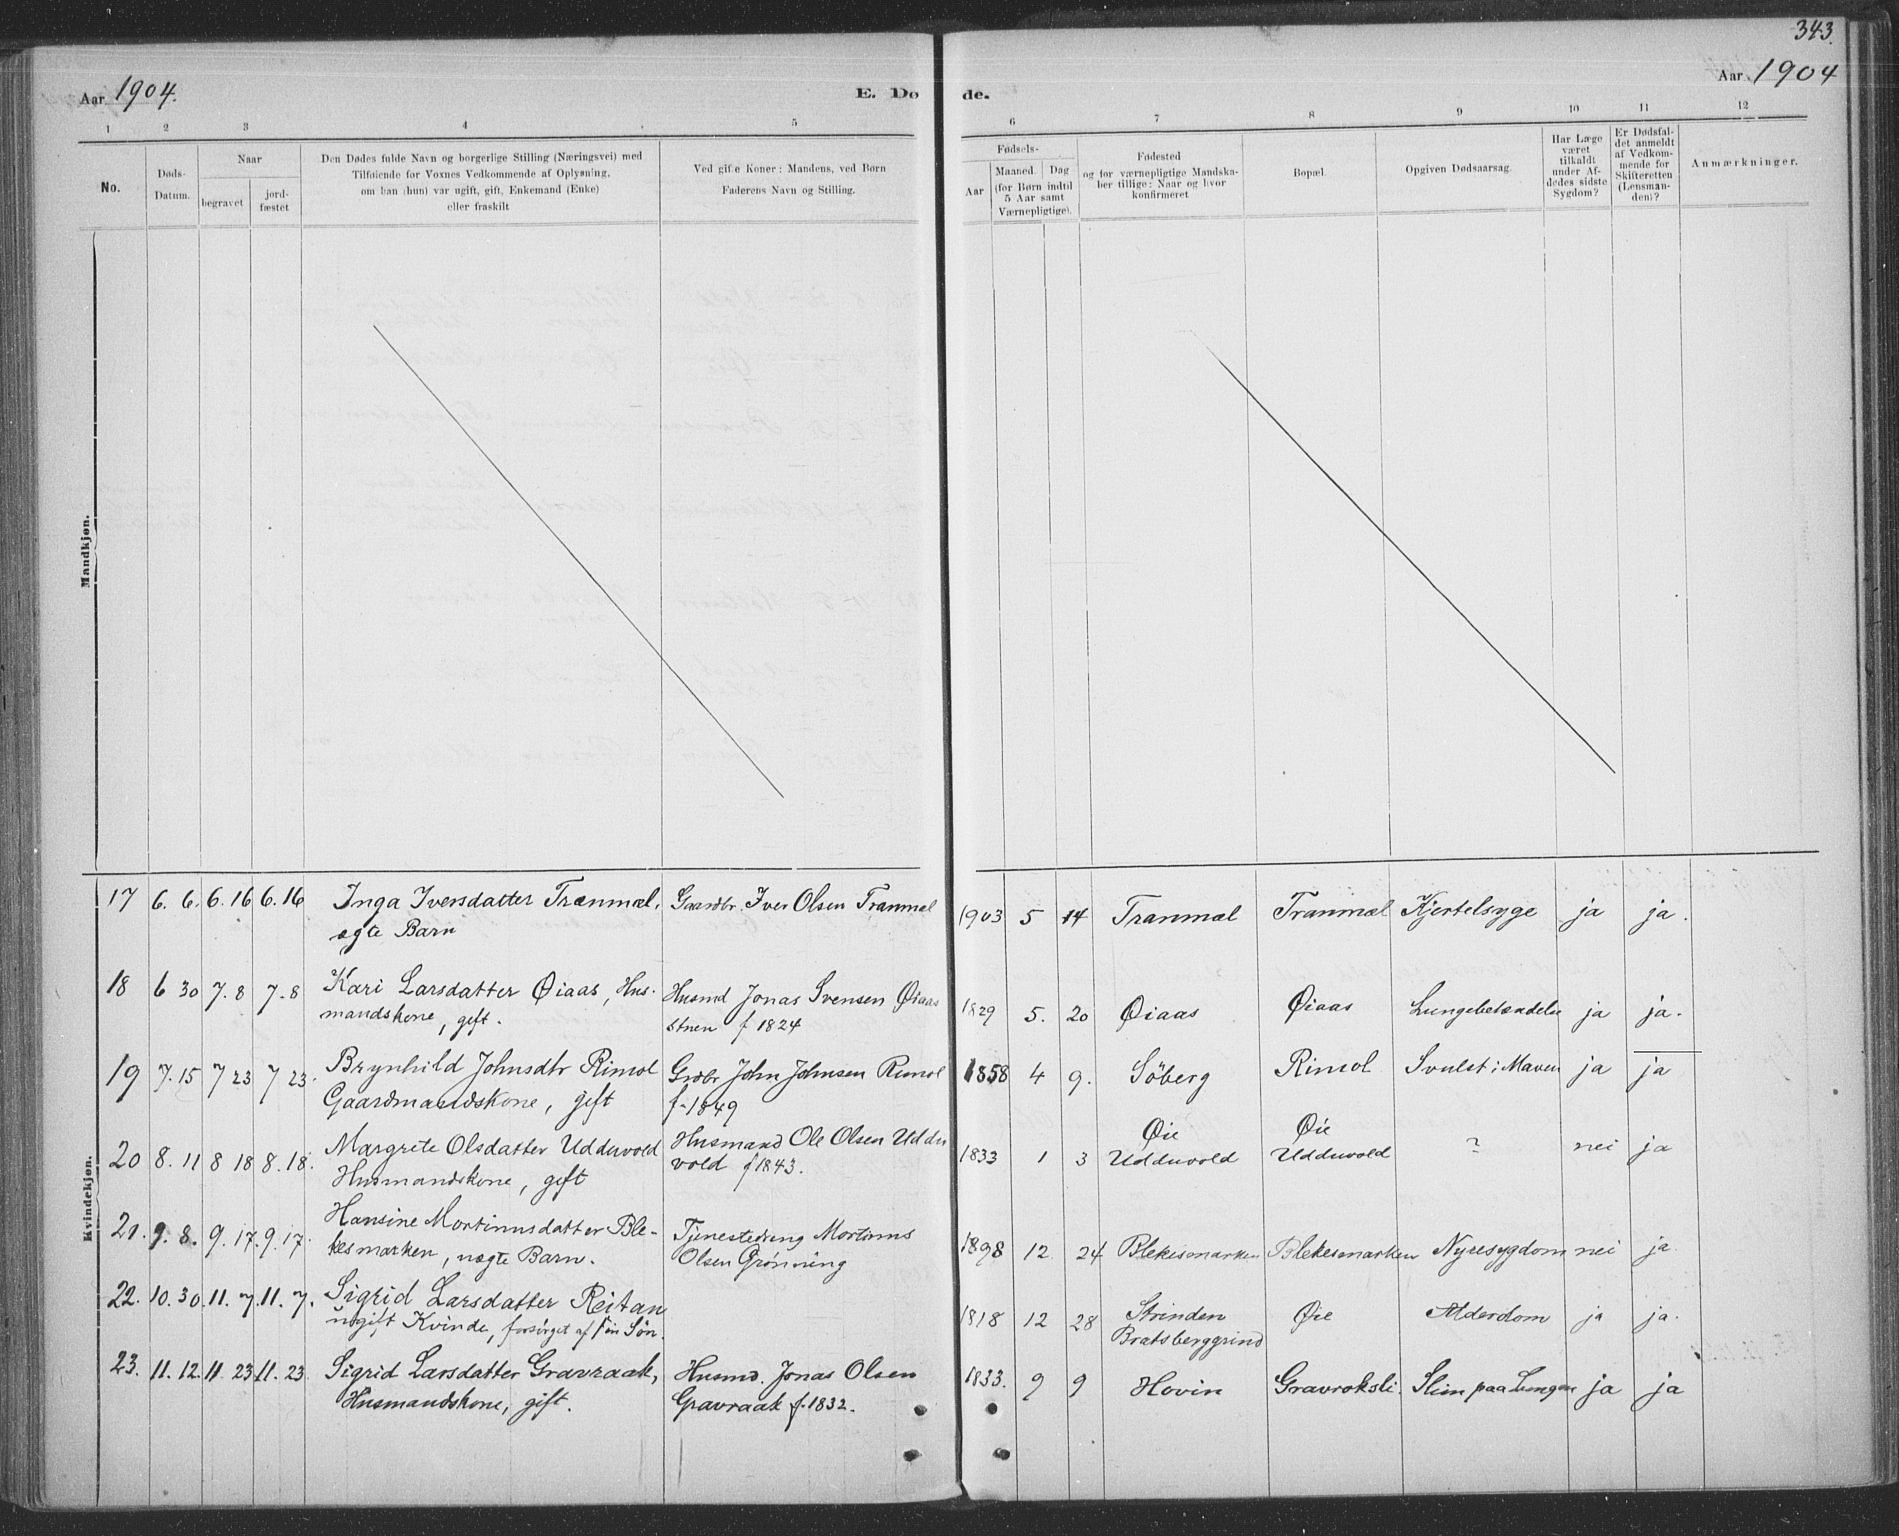 343.
Aar 1904.
E. Dø de.
Aar 1904
1 2 3 4 5 6 7 8 9 10 11 12
No.
Døds-
Datum.
Naar
begravet
jord-
fæstet
Den Dødes fulde Navn og borgerlige Stilling (Næringsvei) med
Tilføiende for Voxnes Vedkommende af Oplysning,
om han (hun) var ugift, gift, Enkemand (Enke)
eller fraskilt
Ved gifte Koner: Mandens, ved Børn
Faderens Navn og Stilling.
Fødsels-
Aar
Maaned. Dag
(for Børn indtil
5 Aar samt
Værnepligtige).
Fødested
og for værnepligtige Mandska-
ber tillige: Naar og hvor
konfirmeret
Bopæl.
Opgiven Dødsaarsag.
Har Læge
været
tilkaldt
under Af-
dødes sidste
Sygdom?
Er Dødsfal-
det anmeldt
af Vedkom-
mende for
Skifteretten
(Lensman-
den)?
Anmærkninger.
Mandkjøn.
Kvindekjøn.
17 6. 6. 6. 16 6. 16 Inga Iversdatter Tranmæl, Gaardbr. Iver Olsen Tranmæl 1903 5 14 Tranmæl Tranmæl Kjertelsyge ja ja.
ægte Barn
18 6 30 7. 8 7. 8 Kari Larsdatter Øiaas, Hus- Husmd Jonas Svensen Øiaas 1829 5. 20 Øiaas Øiaas Lungebetændelse ja ja.
mandskone, gift. stuen f 1824
19 7. 15 7 23 7 23. Brynhild Johnsdtr Rimol Grdbr John Johnsen Rimol 1858 4 9. Söberg Rimol Svulst i Maven ja ja
Gaardmandskone, gift f. 1849
20 8. 11 8 18 8. 18. Margrete Olsdatter Udduvold Husmand Ole Olsen Uddu 1833 1 3 Øie Udduvold Øie Udduvold ? nei ja
Husmandskone, gift vold f 1843.
21. 9. 8. 9. 17. 9. 17. Hansine Mortinusdatter Ble- Tjenestedreng Mortinus 1898 12 24 Blekesmarken Blekesmarken Nyresygdom nei ja
kesmarken, uægte Barn. Olsen Grønning
22. 10. 30. 11. 7. 11. 7. Sigrid Larsdatter Reitan 1818 12 28 Strinden Øie Alderdom ja ja.
ugift Kvinde, forsörget af sin Sön. Bratsberggrind
23. 11. 12. 11 23 11. 23 Sigrid Larsdatter Gravraak, Husmd. Jonas Olsen 1833. 9 9 Hovin Gravroksli Slim paa Lungen ja ja
Husmandskone, gift. Gravraak f. 1832.